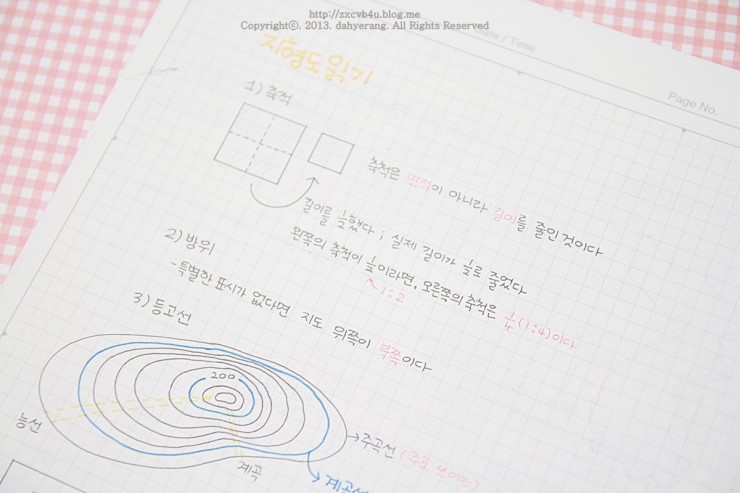 http://zxcvb4u.blog.me
Copyrightⓒ, 2013. dahyerang. All Rights Reserved.
Date / Time
Page No.
지형도 읽기
1) 축척
축척은 면적이 아니라 길이를 줄인 것이다
길이를 ½했다 ; 실제 길이가 ½로 줄었다
왼쪽의 축척이 ½이라면, 오른쪽의 축척은 ¼(1:4)이다
1:2
2) 방위
-특별한 표시가 없다면 지도 위쪽이 북쪽이다
3) 등고선
200
능선
계곡
주곡선 (주로 쓰이는)
계곡선